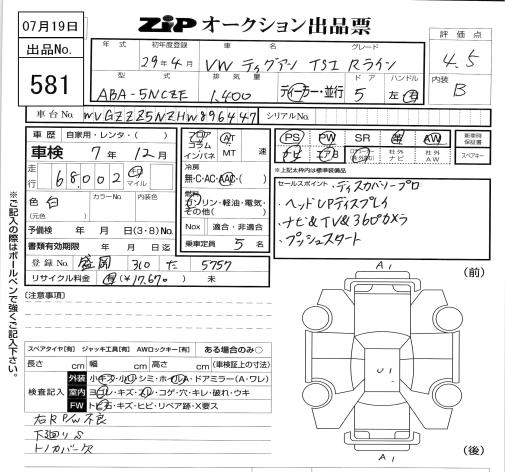 07月19日
出品No.
581
ZIP オークション出品票
年式 初年度登録 車名 グレード
29年4月 VW ティグアン TSI Rライン
評価点
4.5
内装
B
型式 排気量 ドア ハンドル
ABA-5NCZE 1,400 ディーラー・並行 5 左 右
車台No. WVGZZZ5NZHW896447 シリアルNo.
車歴 自家用・レンタ・( )
車検 7年12月
走行 68,002 km マイル
色 白 カラーNo. 内装色
(元色)
予備検 年 月 日(3・8)No.
書類有効期限 年 月 日迄
登録No. 盛岡 310 た 5757
リサイクル料金 有(¥17,670) 未
フロア コラム インパネ AT MT 速
冷房
無・C・AC・AAC・( )
燃料
ガソリン・軽油・電気・その他( )
Nox 適合・非適合
乗車定員 5 名
PS PW SR 革 AW 新車時保証書
ナビ エアB 社外ナビ 社外AW スペアキー
※上記太枠内は標準装備品
セールスポイント・ディスカバリープロ
・ヘッドUPディスプレイ
・ナビ&TV&360°カメラ
・プッシュスタート
※ご記入の際はボールペンで強くご記入下さい。
[注意事項]
スペアタイヤ[有] ジャッキ工具[有] AWロックキー[有] ある場合のみ○
長さ cm 幅 cm 高さ cm (車検証上の寸法)
検査記入
外装 小キズ・小凹・シミ・ホイールA・ドアミラー(A・ワレ)
室内 ヨゴレ・キズ・スレ・コゲ・穴・キレ・破れ・ウキ
FW トビ石・キズ・ヒビ・リペア跡・X要ス
右R P/W不良
下廻りS
トノカバー欠
A1
(前)
U1
A1
(後)